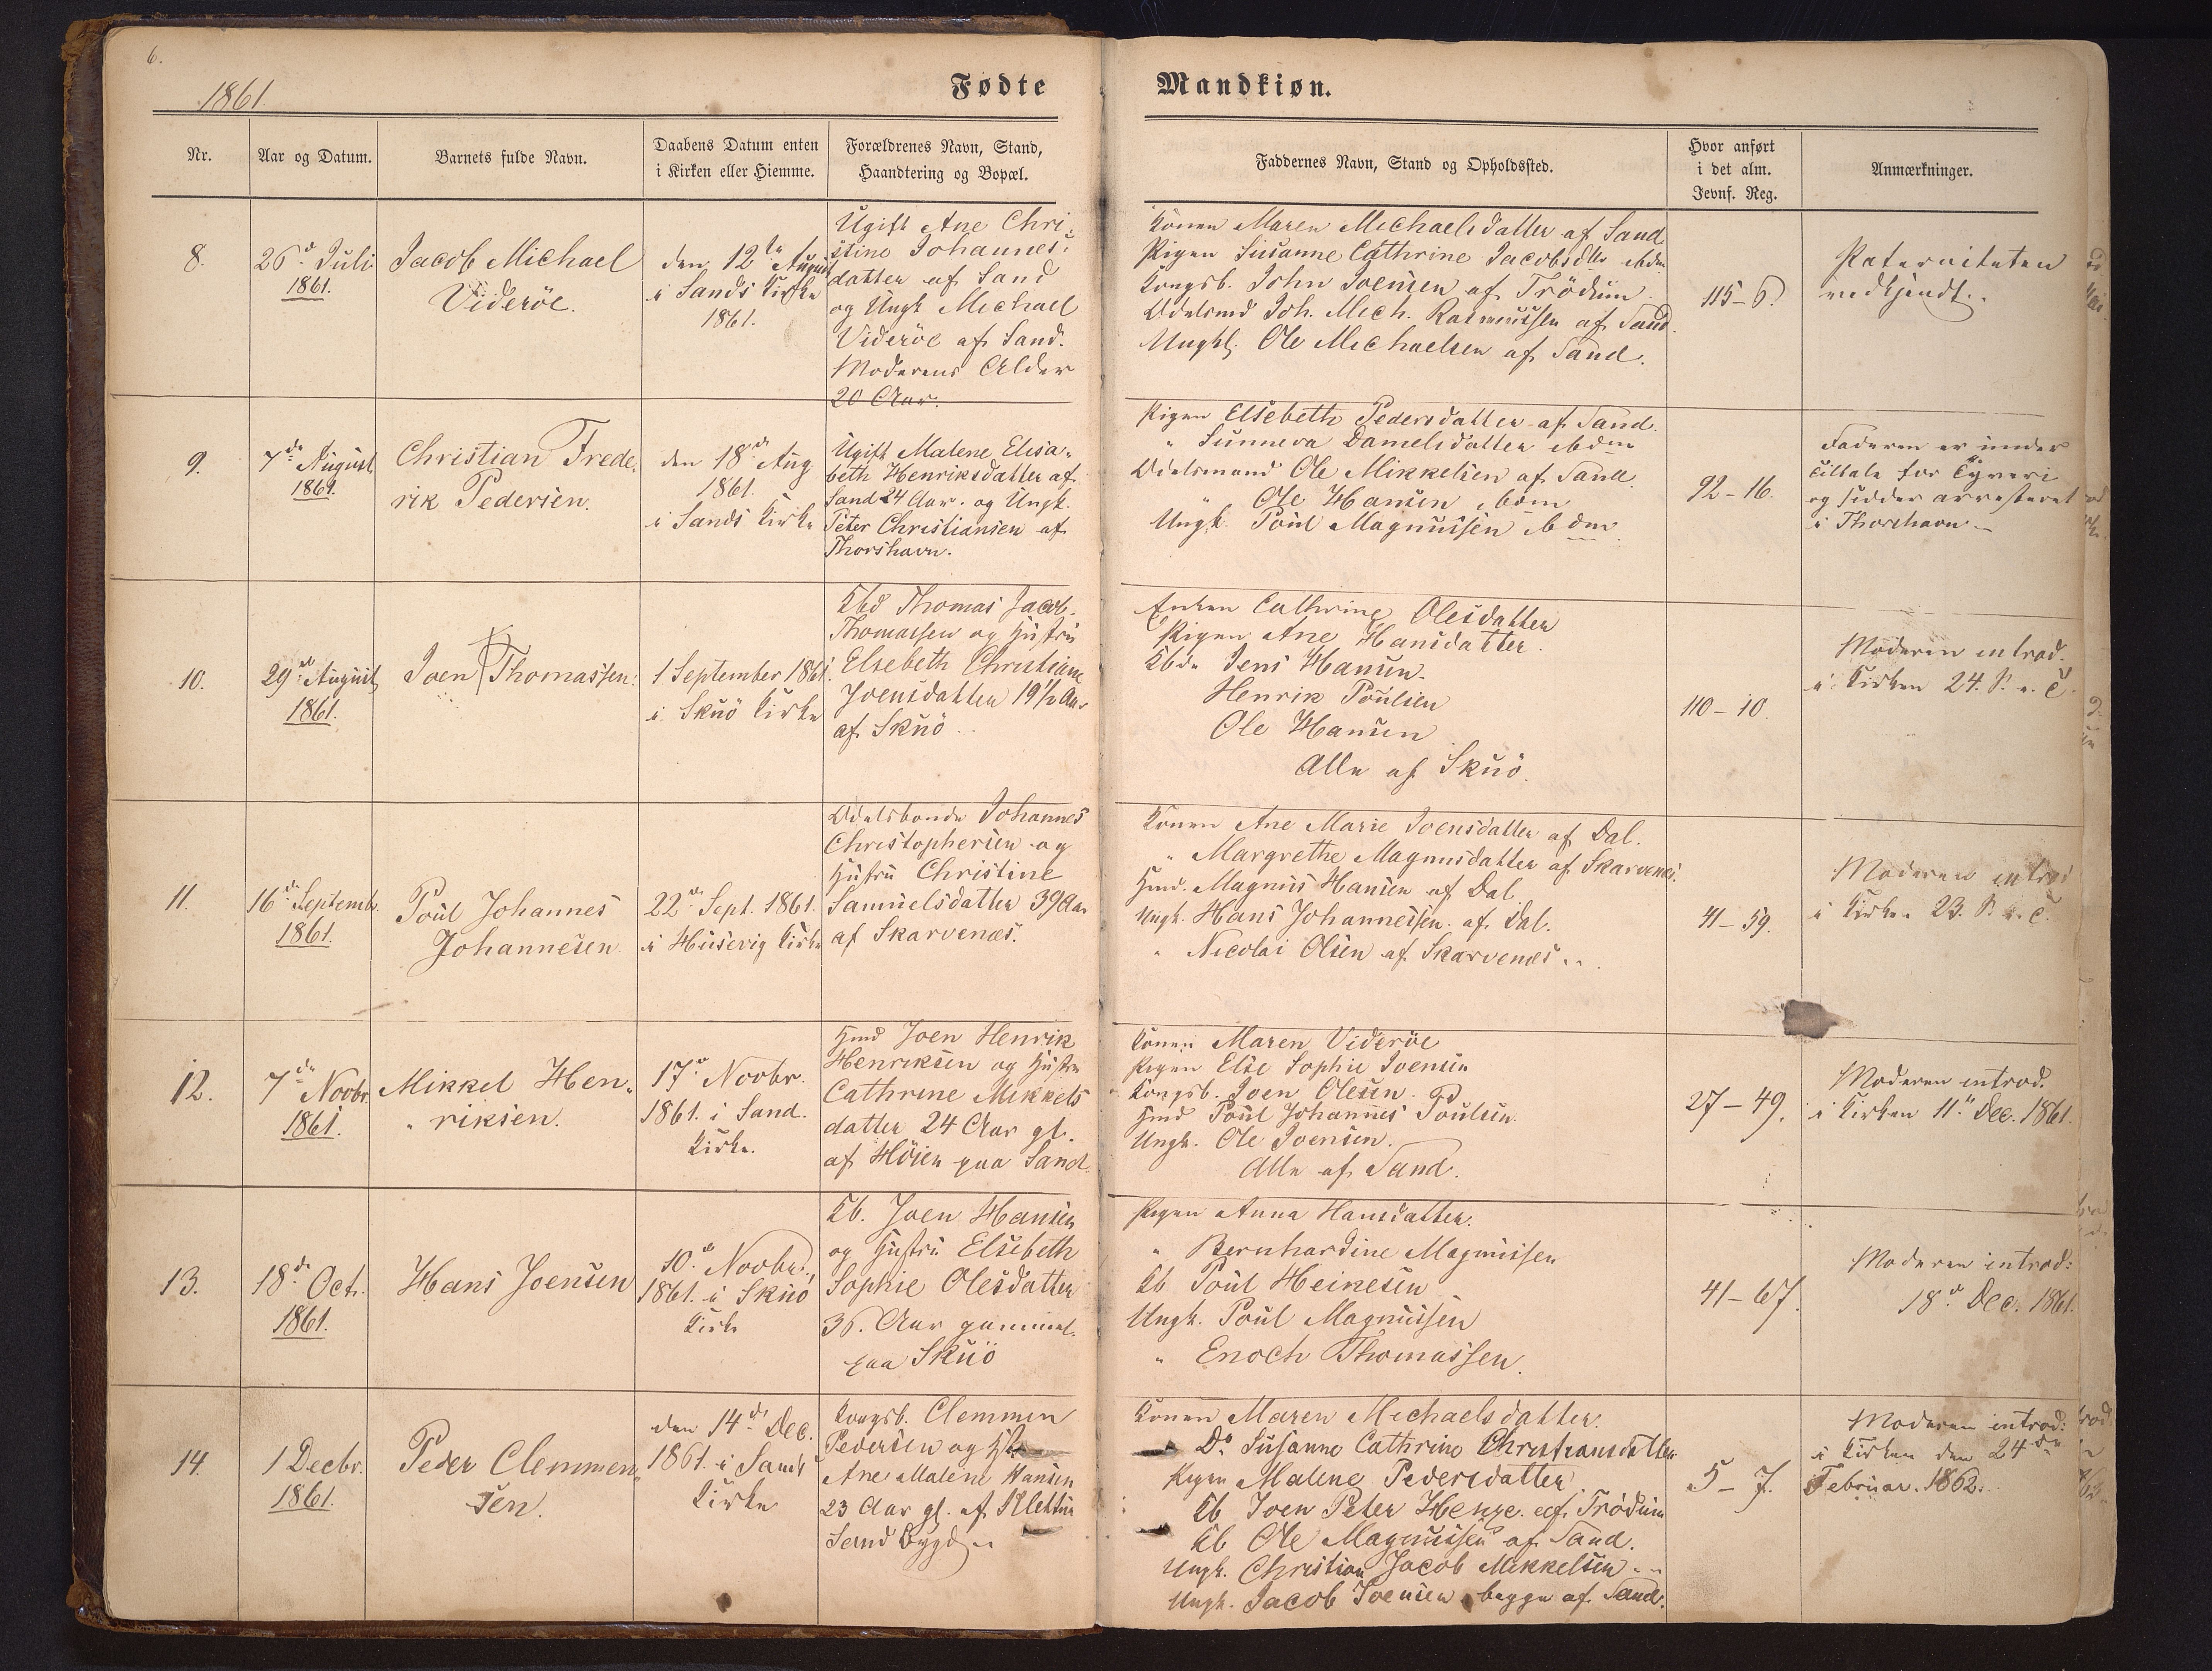 6.
1861
Fødte
Nr.
Aar og Datum.
Barnets fulde Navn.
Daabens Datum enten
i Kirken eller Hiemme.
Forældrenes Navn, Stand,
Haandtering og Bopæl.
8.
26 d. Juli
1861.
Jacob Michael
Viderøe.
den 12te August
i Sands Kirke
1861.
Ugift Ane Chri-
stine Johannes-
datter af Sand
og Ungk Michael
Viderøe af Sand.
Moderens Alder
20 Aar.
9.
7de August
1861.
Christian Frede-
rik Pedersen.
den 18de Aug
1861.
i Sands Kirke
Ugift Malene Elisa-
beth Henriksdatter af
Sand 24 Aar. og Ungk.
Peter Christiansen af
Thorshavn.
10.
29de August
1861.
Joen Thomassen.
1 September 1861.
i Skuö Kirke
Kbd Thomas Jacob
Thomassen og Hustru
Elsebeth Christiane
Joensdatter 19 1/2 Aar
af Skuö
11.
16de Septembr.
1861.
Poul Johannes
Johannesen
22de Sept. 1861.
i Husevig Kirke
Odelsbonde Johannes
Christophersen og
Hustru Christine
Samuelsdatter 39 Aar
af Skarvenæs.
12.
7de Novbr.
1861.
Mikkel Hen-
riksen.
17de Novbr.
1861. i Sand.
Kirke.
Hmd Joen Henrik
Henriksen og Hustru
Cathrine Mikkels
datter 24 Aar gl.
af Höien paa Sand
13.
18de Oct.
1861.
Hans Joensen
10de Novbr.
1861. i Skuö
Kirke
Kb. Joen Hansen
og Hustru Elsebeth
Sophie Olesdatter
36. Aar gammel.
paa Skuö
14.
1 Decbr.
1861.
Peder Clemmen-
sen.
den 14de Dec.
1861. i Sands
Kirke
Kongsb. Clemmen
Pedersen og
Ane Malene Hansen
23 Aar gl. af Klettin
Sand Bygd
Mandkiøn.
Faddernes Navn, Stand og Opholdssted.
Hvor anført
i det alm.
Jevnf. Reg.
Anmærkninger.
Konen Maren Michaelsdatter af Sand
Pigen Susanne Cathrine Jacobsdtr ibdm
Kongsb. John Joensen af Trödum
Odelsmd Joh. Mich. Rasmussen af Sand.
Ungkl. Ole Michaelsen af Sand.
115-6.
Paterniteten
vedkjendt.
Pigen Elsebeth Pedersdatter af Sand.
" Sunneva Danielsdatter ibdm
Odelsmand Ole Mikkelsen af Sand
" Ole Hansen ibdm
Ungk. Poul Magnussen ibdm
92-16.
Faderen er under
Tiltale for Tyveri
og sidder arresteret
i Thorshavn.
Enken Cathrine Olesdatter
Pigen Ane Hansdatter.
Kbde Jens Hansen.
Henrik Poulsen
Ole Hansen
Alle af Skuö.
110-10.
Moderen introd.
i Kirken 24. S. e. T.
Konen Ane Marie Joensdatter af Dal.
" Margrethe Magnusdatter af Skarvenæs.
Hmd. Magnus Hansen af Dal.
Ungk. Hans Johannessen af Dal.
" Nicolai Olsen af Skarvenæs.
41-59.
Moderen introd
i Kirken 23. S. e. T.
Konen Maren Viderøe
Pigen Else Sophie Joensen
Kongsb. Joen Olesen.
Hmd Poul Johannes Poulsen.
Ungk. Ole Joensen.
Alle af Sand.
27-49.
Moderen introd.
i Kirken 11. Dec. 1861.
Pigen Anna Hansdatter.
" Bernhardine Magnussen
Kb Poul Heinesen
Ungk. Poul Magnussen
" Enoch Thomassen.
41-67.
Moderen introd:
18d Dec. 1861.
Konen Maren Michaelsdatter.
Do Susanne Cathrine Christiansdatter
Pigen Malene Pedersdatter
Kb Joen Peter af Trödum
Kb Ole Magnussen af Sand.
Ungk. Christian Jacob Mikkelsen
Ungk. Jacob Joensen begge af Sand.
5-7.
Moderen introd:
i Kirken den 24de
Februar. 1862.